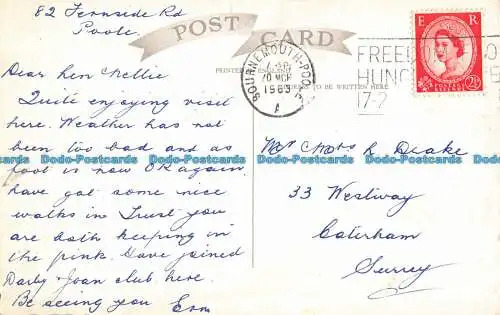 82 Fernside Rd
Poole.
POST CARD
Dear Len & Nellie
Quite enjoying visit
here. Weather has not
been too bad and as
foot is now OK again
have got some nice
walks in Trust you
are both keeping in
the pink. Have joined
Darby & Joan club here.
Be seeing you Ern
PRINTED
TO BE WRITTEN HERE
BOURNEMOUTH-POOLE
10 MCH
1963
A
FREE
HUN
17-2
E R
POSTAGE
REVENUE
2½D
Drake
33 Westway
Caterham
Surrey
Dodo-Postcards Dodo-Postcards Dodo-Postcards Dodo-Postcards